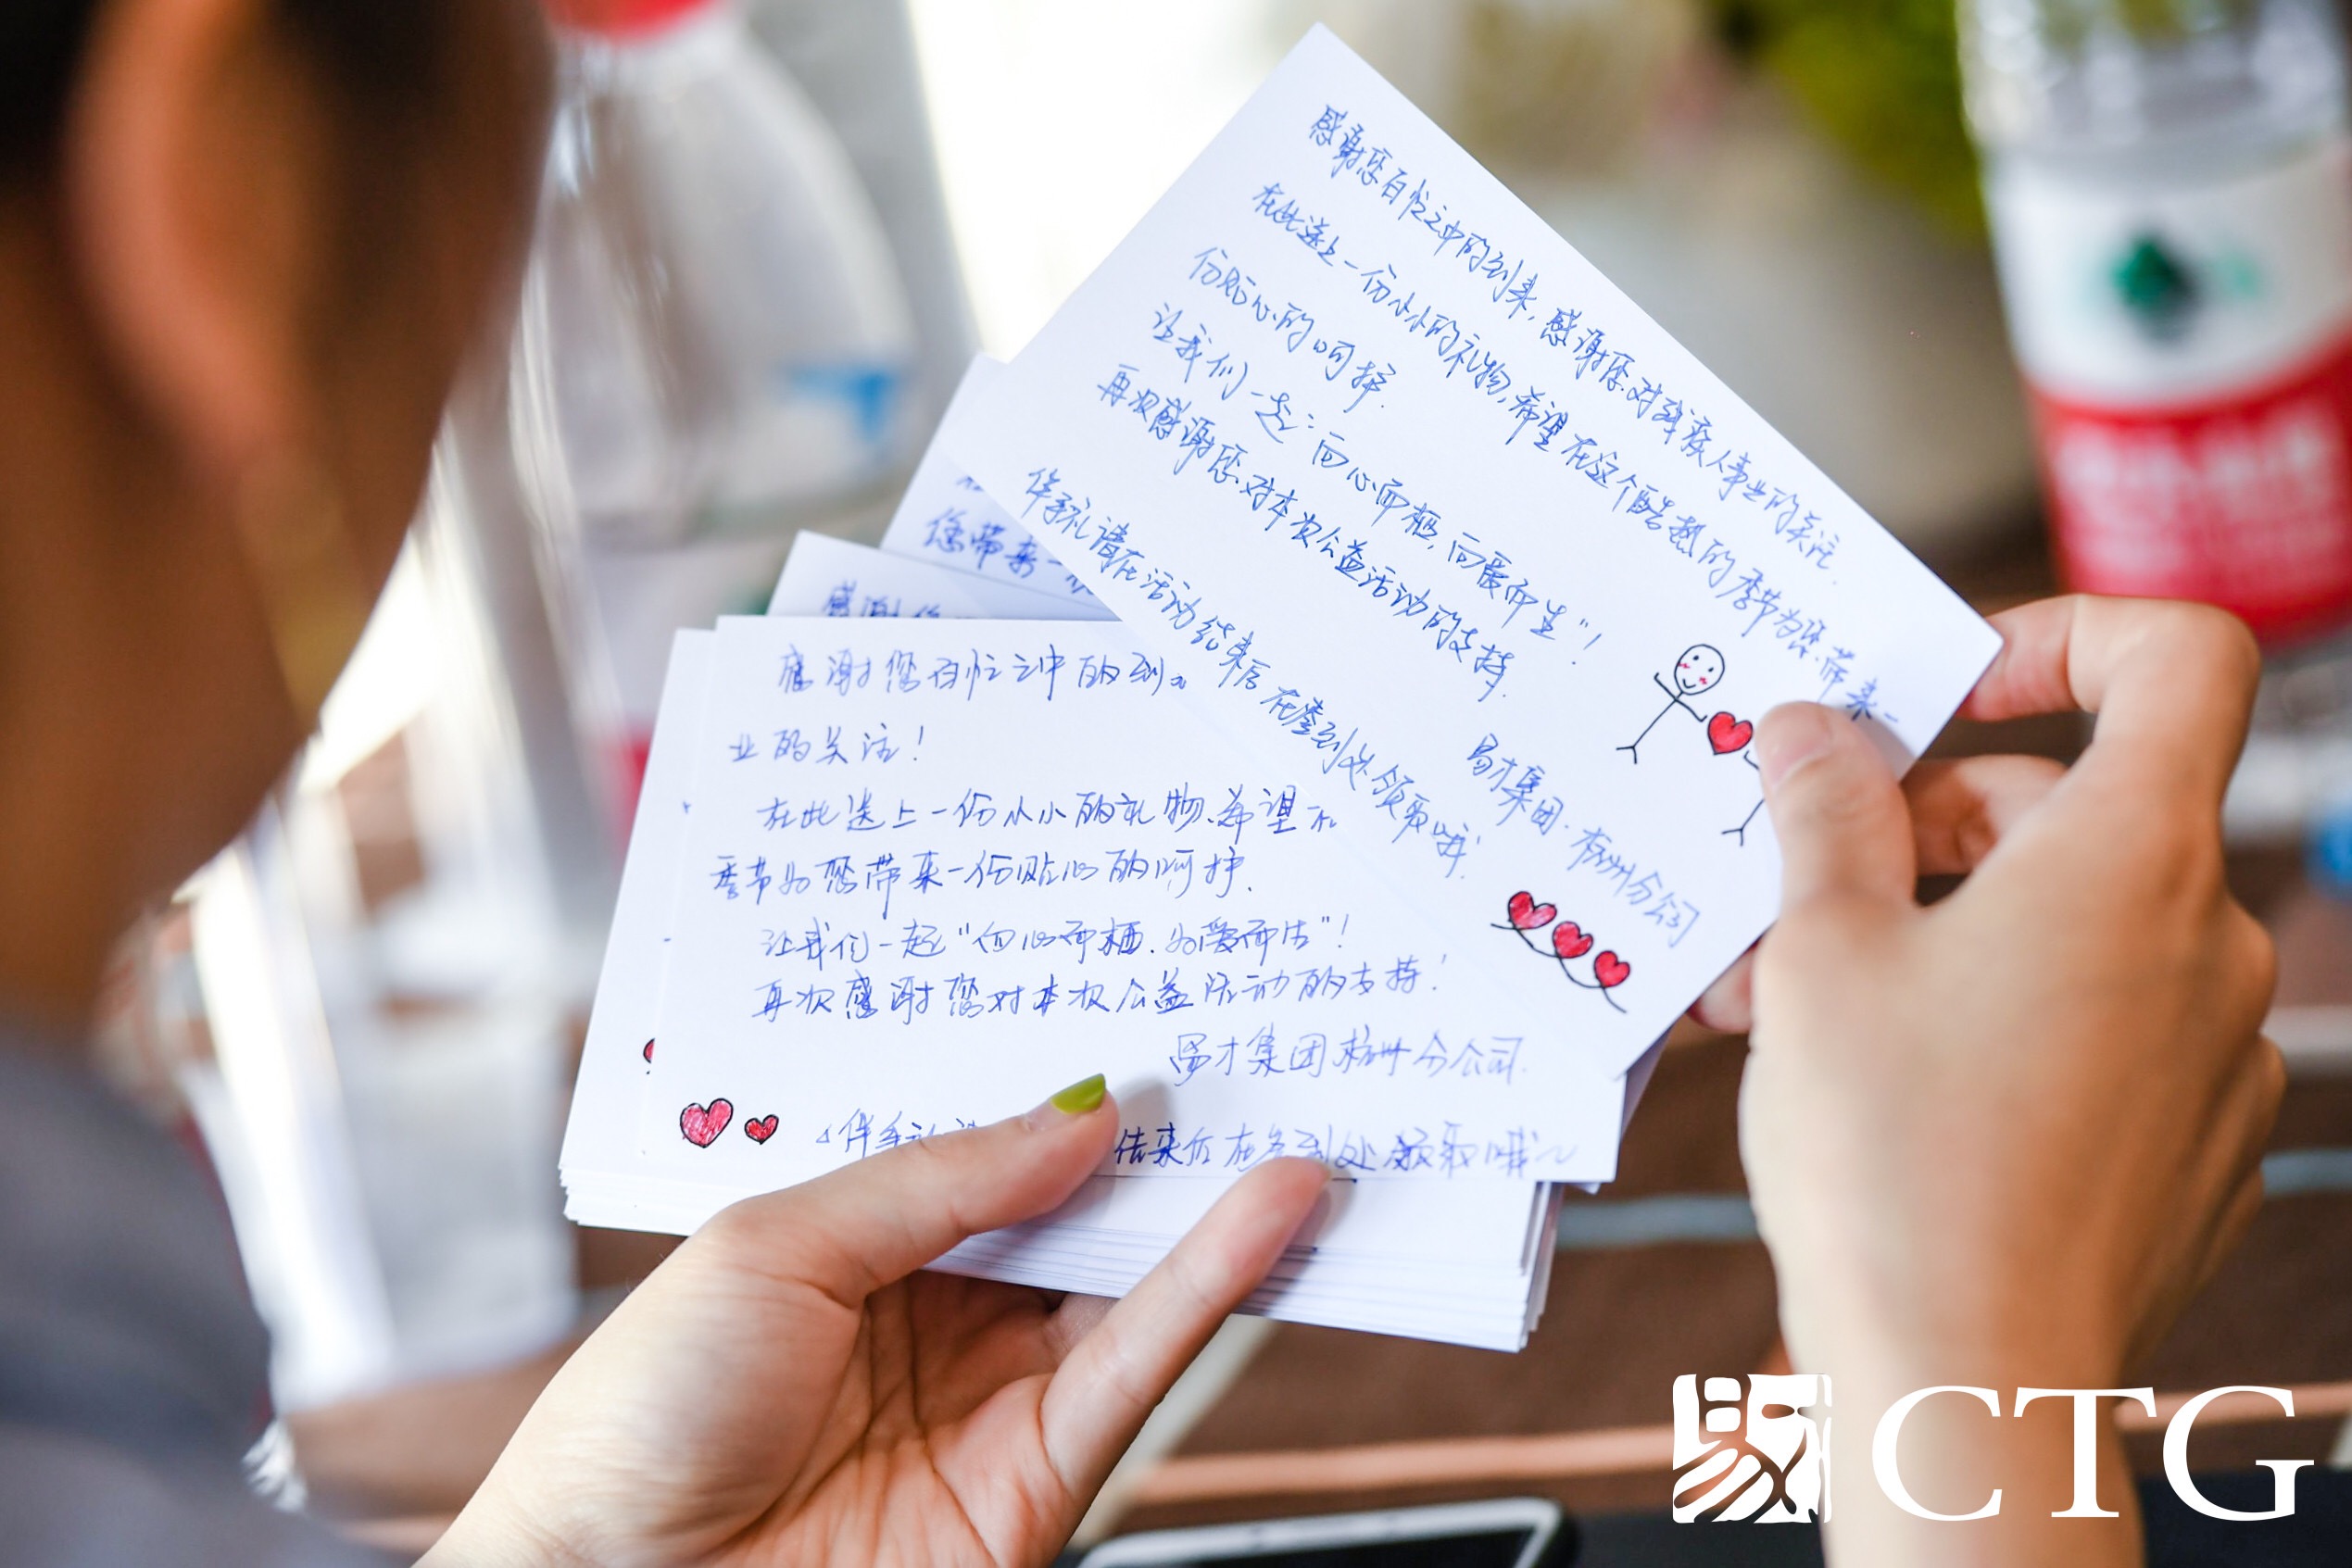 感谢您百忙之中的到来，感谢您对残疾人事业的关注.
在此送上一份小小的礼物，希望在这个酷热的季节为您带来一
份贴心的呵护.
让我们一起："向心而栖，向爱而生"！
再次感谢您对本次公益活动的支持.
易才集团·杭州分公司
伴手礼请在活动结束后在签到处领取哦！
您带来一
感谢您
感谢您百忙之中的到
业的关注！
在此送上一份小小的礼物、希望
季节为您带来一份贴心的呵护.
让我们一起"向心而栖、为爱而生"！
再次感谢您对本次公益活动的支持！
易才集团杭州分公司.
伴手礼 结束后在签到处领取哦~
易才 CTG